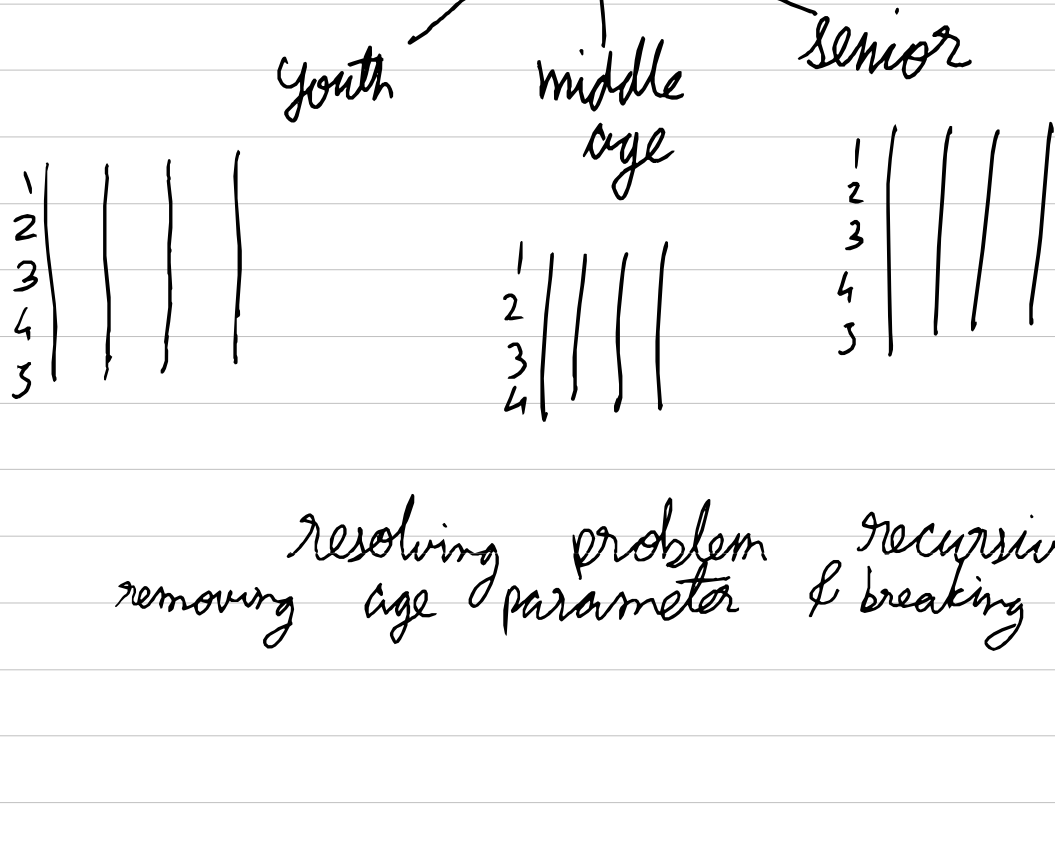 youth middle senior
age
1 1
2 2
3 3
4 4
5 5
1
2
3
4
resolving problem recursiv
removing age parameter & breaking